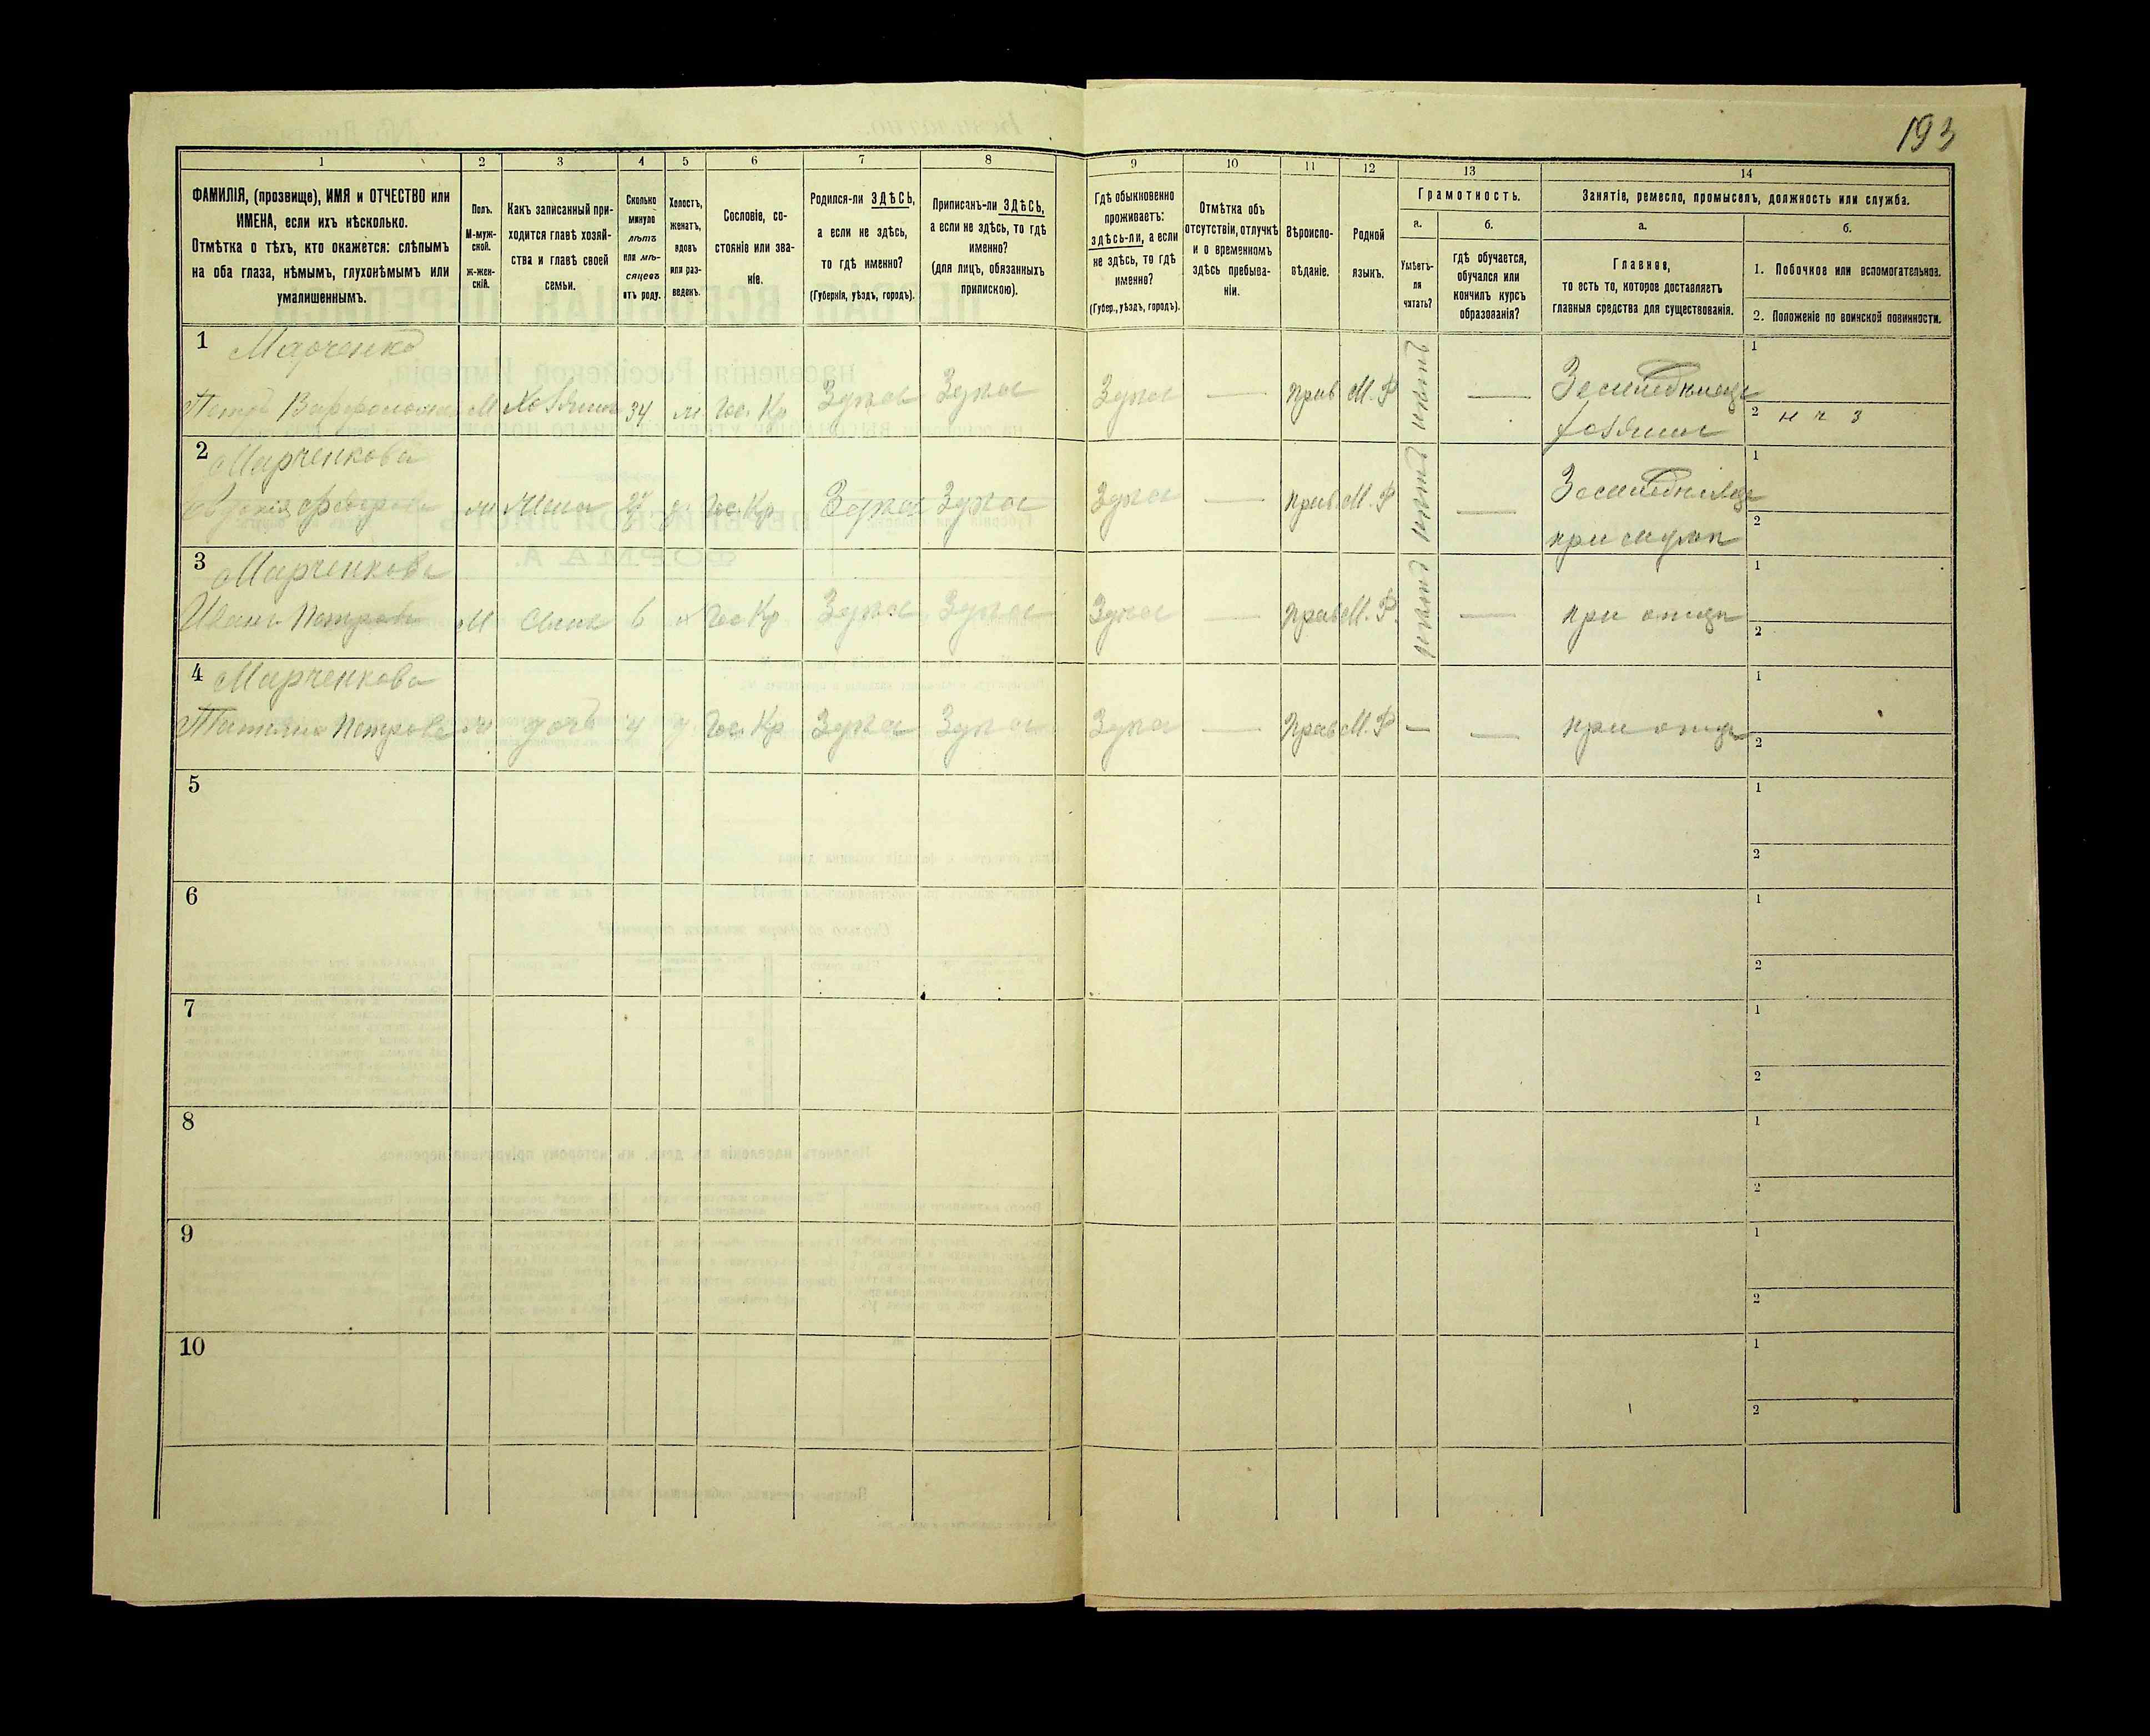 193
1
2
3
4
5
6
7
8
9
10
11
12
13
14
ФАМИЛІЯ, (прозвище), ИМЯ и ОТЧЕСТВО или
ИМЕНА, если ихъ нѣсколько.
Отмѣтка о тѣхъ, кто окажется: слѣпымъ
на оба глаза, нѣмымъ, глухонѣмымъ или
умалишеннымъ.
Полъ.
М-муж-
ской.
Ж-жен-
скій.
Какъ записанный при-
ходится главѣ хозяй-
ства и главѣ своей
семьи.
Сколько
минуло
лѣтъ
или мѣ-
сяцевъ
отъ роду.
Холостъ,
женатъ,
вдовъ
или раз-
веденъ.
Сословіе, со-
стояніе или зва-
ніе.
Родился-ли ЗДѢСЬ,
а если не здѣсь,
то гдѣ именно?
(Губернія, уѣздъ, городъ).
Приписанъ-ли ЗДѢСЬ,
а если не здѣсь, то гдѣ
именно?
(для лицъ, обязанныхъ
припискою).
Гдѣ обыкновенно
проживаетъ:
здѣсь-ли, а если
не здѣсь, то гдѣ
именно?
(Губер., уѣздъ, городъ).
Отмѣтка объ
отсутствіи, отлучкѣ
и о временномъ
здѣсь пребыва-
ніи.
Вѣроиспо-
вѣданіе.
Родной
языкъ.
Грамотность.
а.
Умѣетъ-
ли
читать?
б.
гдѣ обучается,
обучался или
кончилъ курсъ
образованія?
Занятіе, ремесло, промыселъ, должность или служба.
а.
Главное,
то есть то, которое доставляетъ
главныя средства для существованія.
б.
1. Побочное или вспомогательное.
2. Положеніе по воинской повинности.
1
Марченко
Петръ М Хозяинъ 34 Гос. Кр Здѣсь Здѣсь Здѣсь — Прав М.Р — Земледѣлецъ
хозяинъ
1
2 н ч з
2
Марченкова
Жена Гос. Кр Здѣсь Здѣсь Здѣсь — Прав М.Р — Земледѣлецъ
при мужѣ
1
2
3
Марченкова
Иванъ Петровъ М Сынъ 6 Гос Кр Здѣсь Здѣсь Здѣсь — Прав М.Р. — при отцѣ
1
2
4
Марченкова
Татьяна Петрова дочь 4 Гос. Кр Здѣсь Здѣсь Здѣсь — Прав М.Р — — при отцѣ
1
2
5
1
2
6
1
2
7
1
2
8
1
2
9
1
2
10
1
2